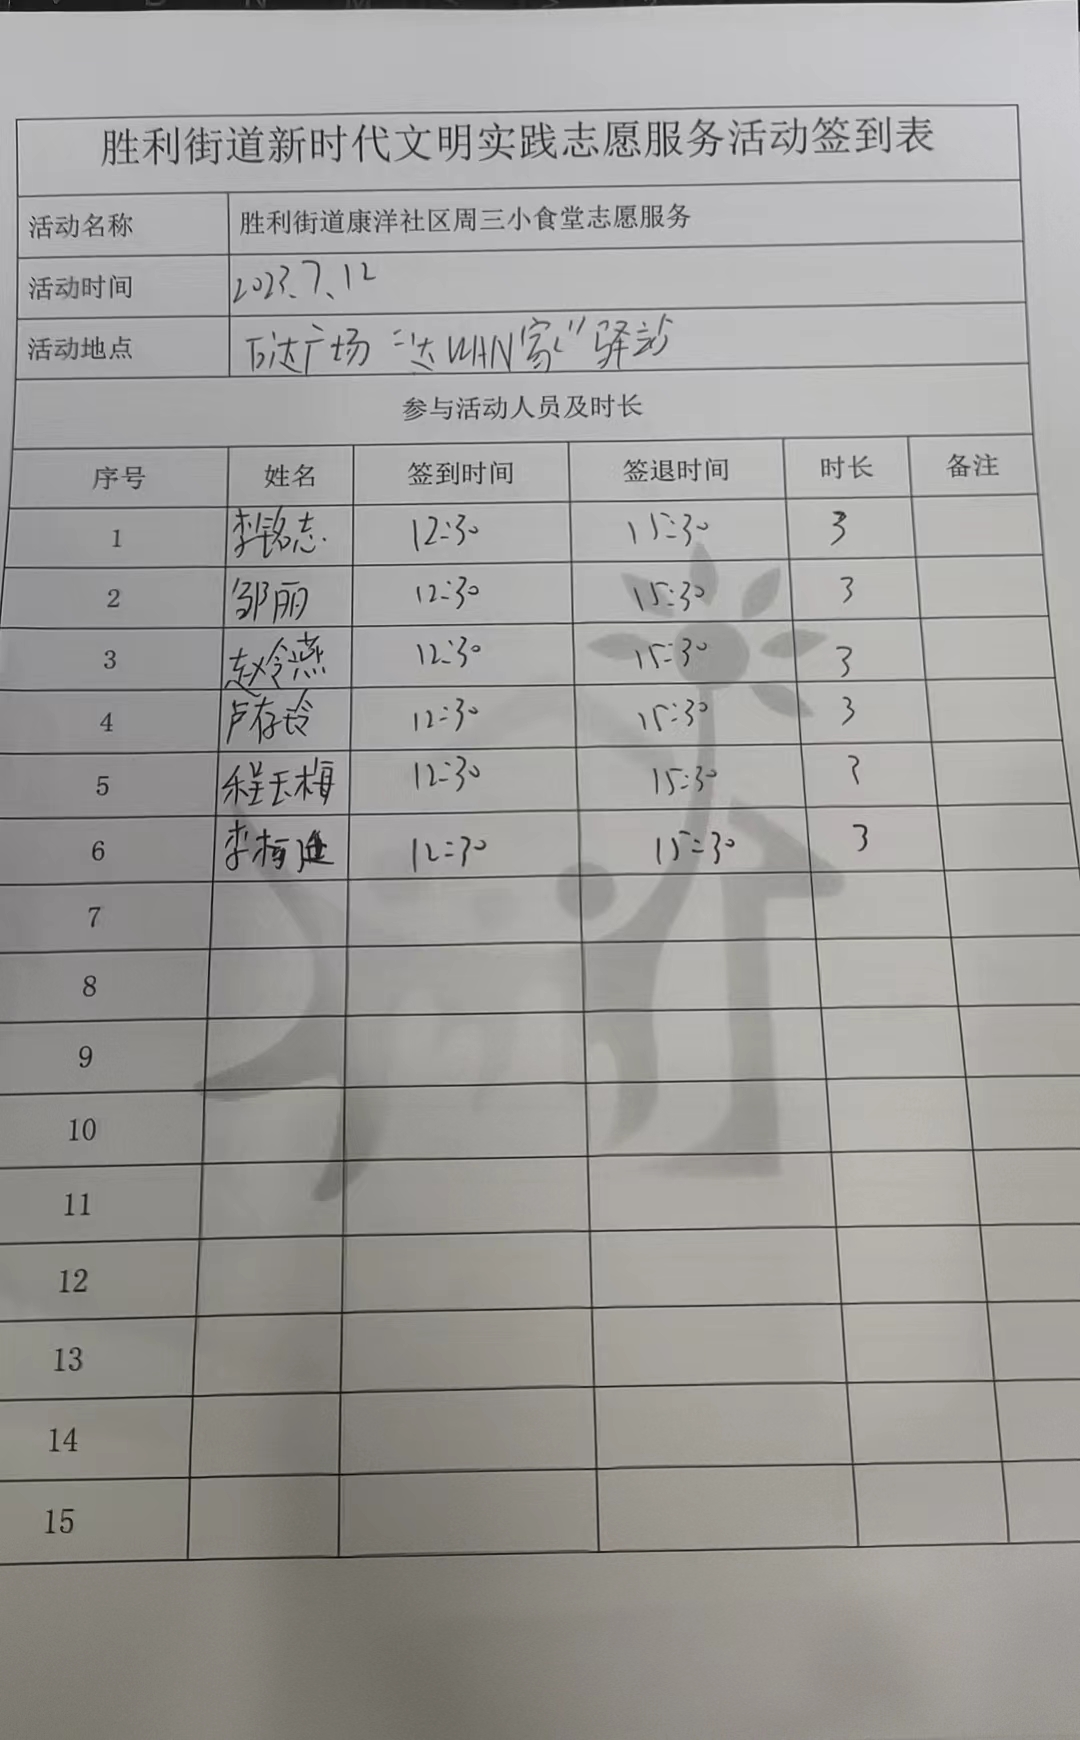 胜利街道新时代文明实践志愿服务活动签到表
活动名称 胜利街道康洋社区周三小食堂志愿服务
活动时间 2023.7.12
活动地点 万达广场“达WAN家”驿站
参与活动人员及时长
序号 姓名 签到时间 签退时间 时长 备注
1 李铭志 12:30 15:30 3
2 邹丽 12:30 15:30 3
3 赵令燕 12:30 15:30 3
4 卢存玲 12:30 15:30 3
5 程玉梅 12:30 15:30 3
6 12:30 15:30 3
7
8
9
10
11
12
13
14
15